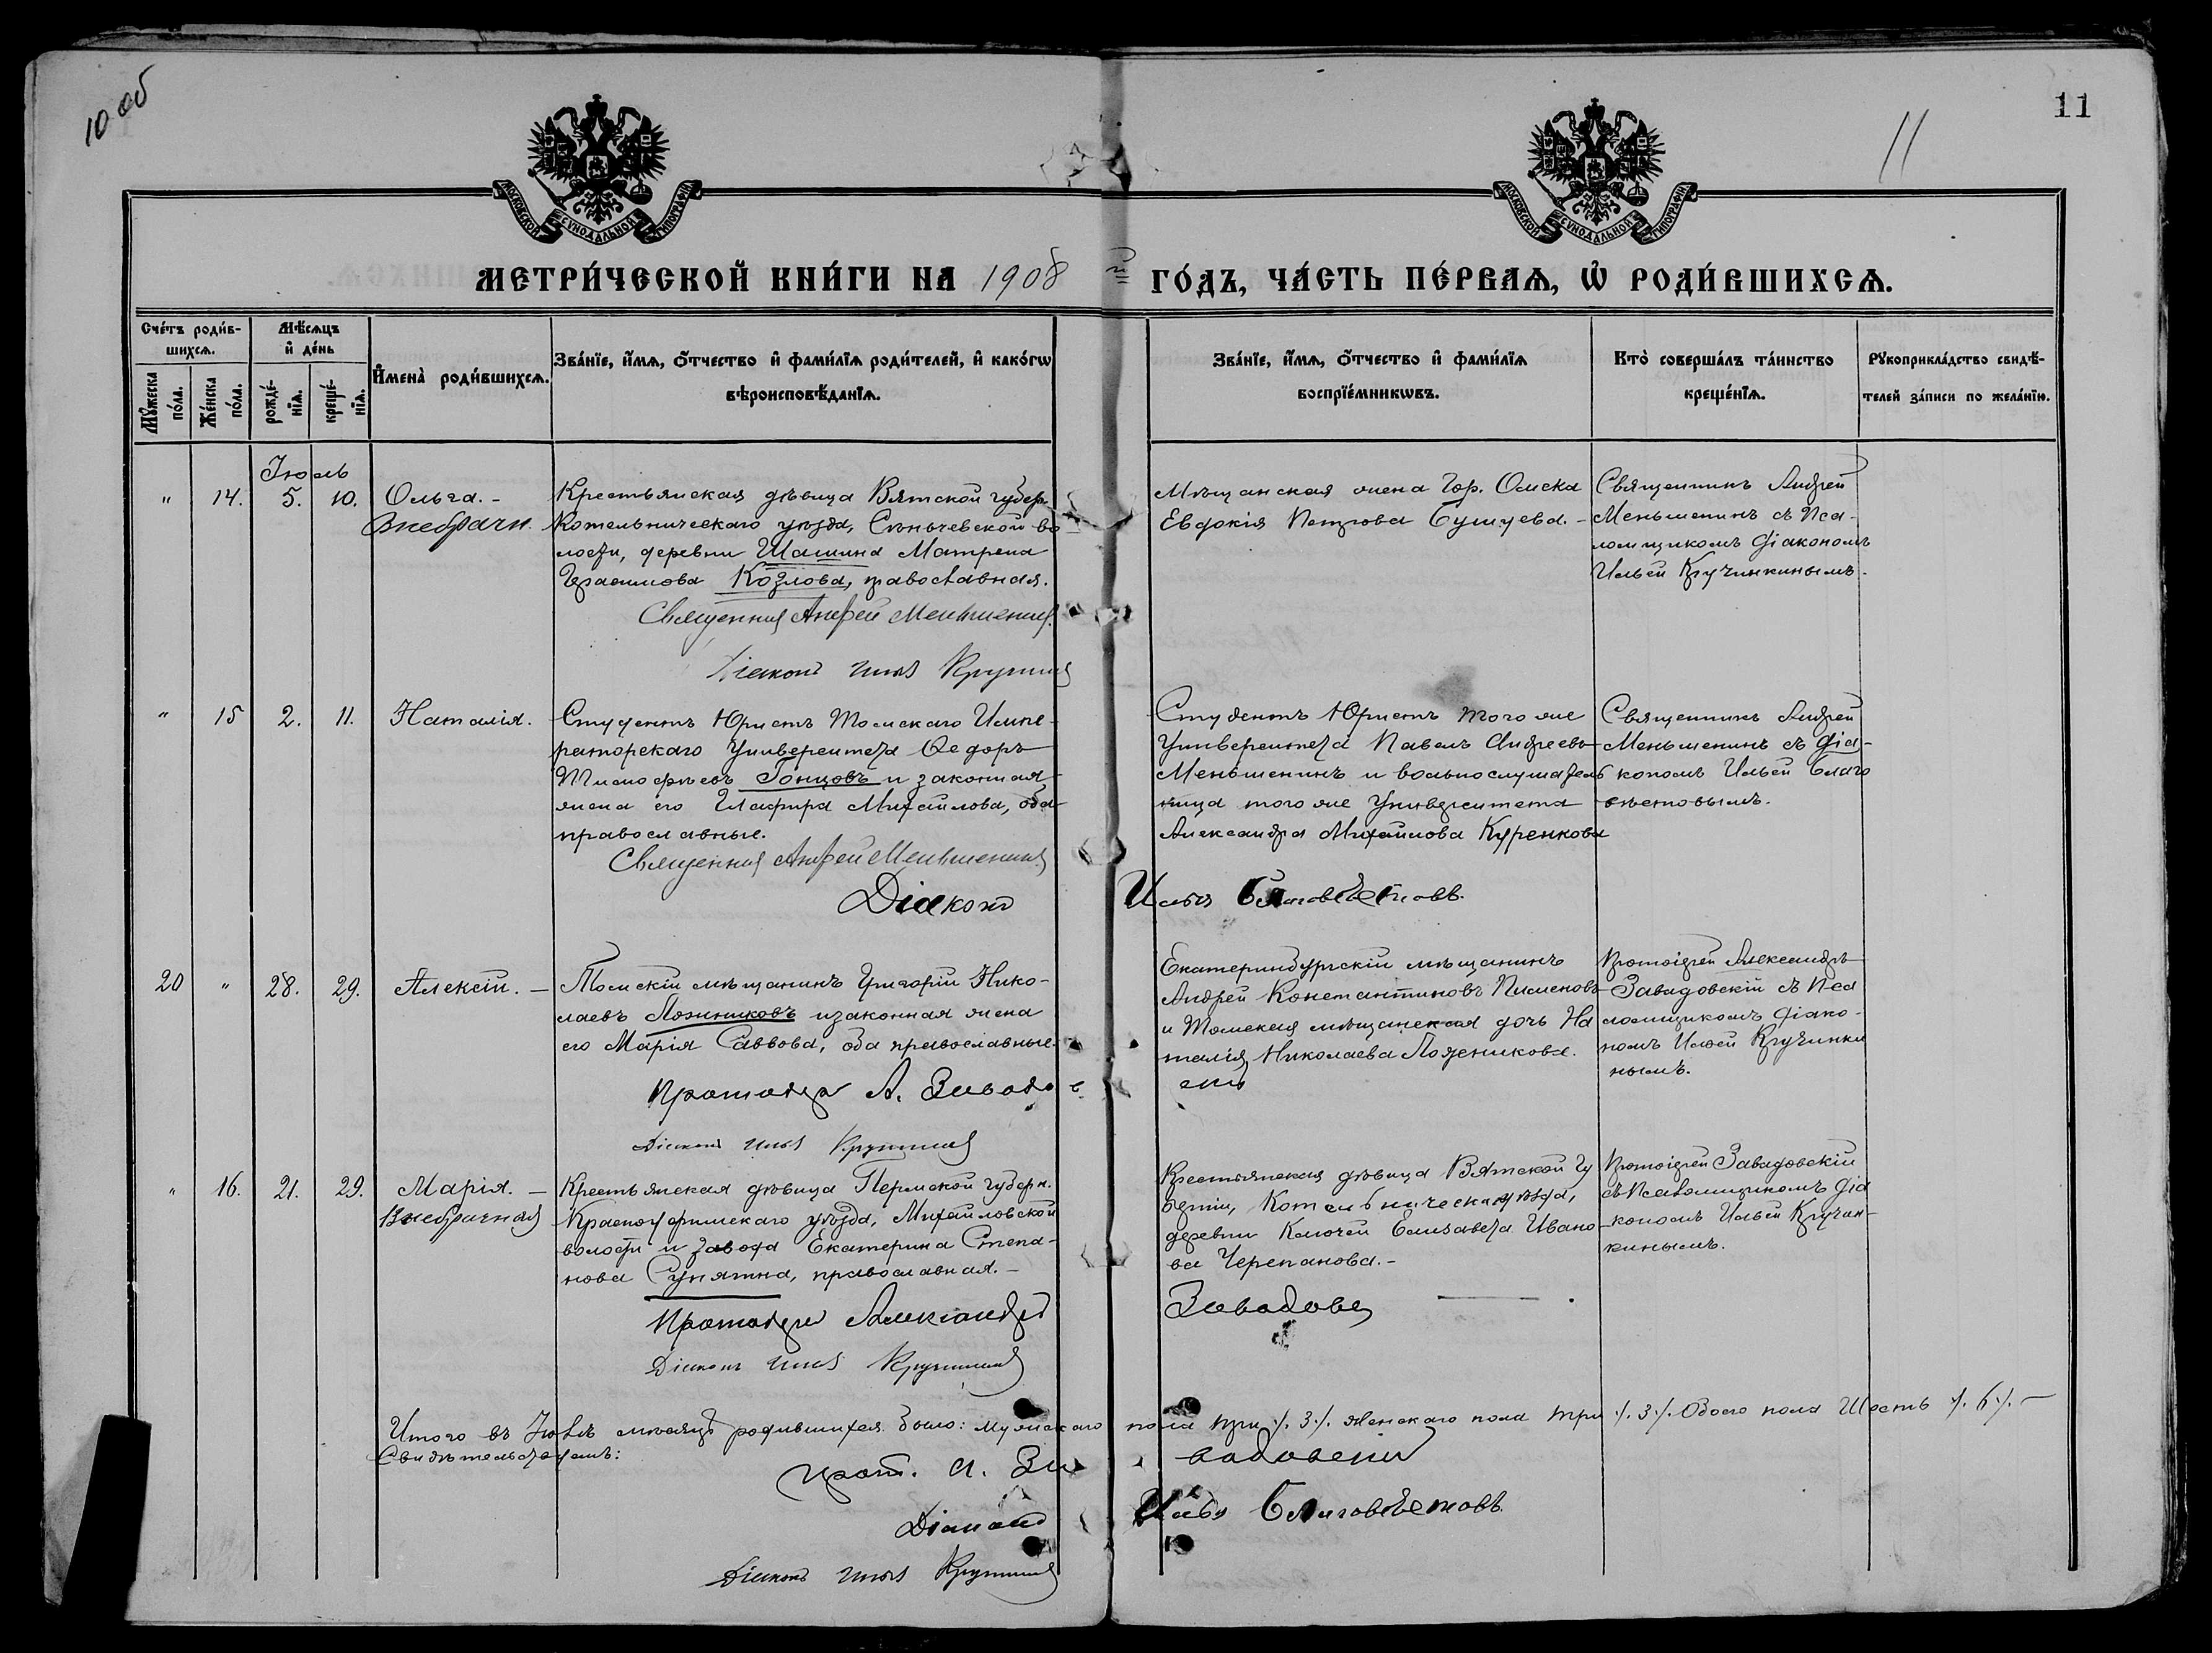 10 об
11
11
МОСКОВСКОЙ СѴНОДАЛЬНОЙ ТИПОГРАФІИ
МОСКОВСКОЙ СѴНОДАЛЬНОЙ ТИПОГРАФІИ
МЕТРИ́ЧЕСКОЙ КНИ́ГИ НА 1908 й ГО́ДЪ, ЧА́СТЬ ПЕ́РВАѦ, Ѡ҆ РОДИ́ВШИХСѦ.
Сче́тъ роди́в-
шихсѧ.
Мꙋ́жеска по́ла.
Же́нска по́ла.
Мѣ́сѧцъ
и҆ де́нь
рожде́-нїѧ.
креще́-нїѧ.
И҆мена̀ роди́вшихсѧ.
Зва́нїе, и҆́мѧ, ѻ҆́тчество и҆ фами́лїѧ роди́телей, и҆ како́гѡ
вѣроисповѣ́данїѧ.
Зва́нїе, и҆́мѧ, ѻ҆́тчество и҆ фами́лїѧ
воспрїе́мникѡвъ.
Кто̀ соверша́лъ та́инство
креще́нїѧ.
Рꙋкоприкла́дство свидѣ́-
телей за́писи по жела́нїю.
Іюль
" 14. 5. 10. Ольга. -
Внебрачн.
Крестьянская дѣвица Вятской губер.
Котельническаго уѣзда, во
лости, деревни Шашина Матрена
Герасимова Козлова, православная.
Священник Андрей Меньшенин
Діаконъ Илья Кручинкин
Мѣщанская жена Гор. Омска
Евдокія Петрова Бушуева. -
Священникъ Андрей
Меньшенинъ съ Пса-
ломщикомъ Діакономъ
Ильей Кручинкинымъ.
" 15 2. 11. Наталія.
Студентъ Юристъ Томскаго Импе-
раторскаго Университета Ѳедоръ
Тимофѣевъ Гонцовъ и законная
жена его Глафира Михайлова, оба
православные.
Священник Андрей Меньшенин
Діаконъ Илья Благовѣстовъ.
Студентъ Юристъ того же
Университета Павелъ Андреевъ
Меньшенинъ и вольнослушатель
ница того же Университета
Александра Михайлова Куренкова
Священникъ Андрей
Меньшенинъ съ Діа-
кономъ Ильей Благо
вѣстовымъ.
20 " 28. 29. Алексій. -
Томскій мѣщанинъ Григорій Нико-
лаевъ Ложниковъ и законная жена
его Марія Саввова, оба православные.
Протоіер А. Завадовскій
Діаконъ Илья Кручинкин
Екатеринбургскій мѣщанинъ
Андрей Константиновъ Пименовъ
и Томская мѣщанская дочь На
талія Николаева Ложникова.
Протоіерей Александръ
Завадовскій съ Пса
ломщикомъ Діако-
номъ Ильей Кручинки
нымъ.
" 16. 21. 29. Марія. -
Внебрачная
Крестьянская дѣвица Пермской губерн.
Красноуфимскаго уѣзда, Михайловской
волости и завода Екатерина Степа-
нова Сунятина, православная. -
Протоіерей Александръ Завадовск
Діаконъ Илья Кручинкин
Крестьянская дѣвица Вятской Гу
берніи, Котельническ. уѣзда,
деревни Ключей Елизавета Ивано-
ва Черепанова. -
Протоіерей Завадовскій
съ Псаломщикомъ Діа
кономъ Ильей Кручин-
кинымъ.
Итого въ Іюлѣ мѣсяцѣ родившихся было: мужскаго пола три ./. 3 ./. женскаго пола три ./. 3 ./. Обоего пола Шесть ./. 6 ./. -
Свидѣтельствуемъ:
прот. А. Завадовскій
Діаконъ Илья Благовѣстовъ.
Діаконъ Илья Кручинкин